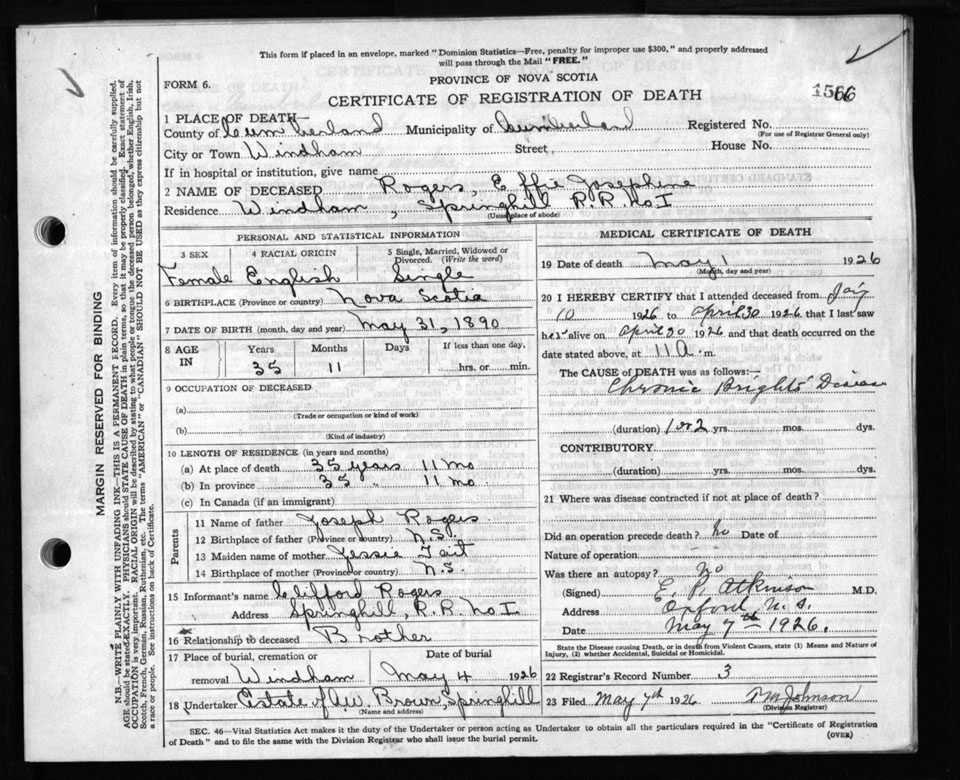 This form if placed in an envelope, marked "Dominion Statistics—Free, penalty for improper use $300," and properly addressed
will pass through the Mail "FREE."
FORM 6.
PROVINCE OF NOVA SCOTIA
1566
CERTIFICATE OF REGISTRATION OF DEATH
1 PLACE OF DEATH—
County of Cumberland Municipality of Cumberland Registered No.
(For use of Registrar General only)
City or Town Windham Street House No.
If in hospital or institution, give name
2 NAME OF DECEASED Rogers, Effie Josephine
Residence Windham, Springhill R.R. No I
(Usual place of abode)
PERSONAL AND STATISTICAL INFORMATION
3 SEX 4 RACIAL ORIGIN 5 Single, Married, Widowed or
Divorced. (Write the word)
Female English Single
6 BIRTHPLACE (Province or country) Nova Scotia
7 DATE OF BIRTH (month, day and year) May 31, 1890
8 AGE IN Years Months Days If less than one day,
35 11 hrs. or min.
9 OCCUPATION OF DECEASED
(a)
(Trade or occupation or kind of work)
(b)
(Kind of industry)
10 LENGTH OF RESIDENCE (in years and months)
(a) At place of death 35 years 11 mo
(b) In province 35 " 11 mo.
(c) In Canada (if an immigrant)
Parents
11 Name of father Joseph Rogers
12 Birthplace of father (Province or country) N.S.
13 Maiden name of mother Jessie Tait
14 Birthplace of mother (Province or country) N.S.
15 Informant's name Clifford Rogers
Address Springhill, R.R. No I
16 Relationship to deceased Brother
17 Place of burial, cremation or Date of burial
removal Windham May 4 1926
18 Undertaker Estate of J.W. Brown, Springhill
(Name and address)
MEDICAL CERTIFICATE OF DEATH
19 Date of death May 1 1926
(Month, day and year)
20 I HEREBY CERTIFY that I attended deceased from
10 1926 to April 30 1926 that I last saw
her alive on April 30 1926 and that death occurred on the
date stated above, at 11 a. m.
The CAUSE of DEATH was as follows:—
Chronic Brights' Disease
(duration) 1 or 2 yrs. mos. dys.
CONTRIBUTORY
(duration) yrs. mos. dys.
21 Where was disease contracted if not at place of death?
Did an operation precede death? No Date of
Nature of operation
Was there an autopsy? No
(Signed) E. P. Atkinson M.D.
Address Oxford, N.S.
Date May 7th 1926.
State the Disease causing Death, or in death from Violent Causes, state (1) Means and Nature of
Injury, (2) whether Accidental, Suicidal or Homicidal.
22 Registrar's Record Number 3
23 Filed May 7th 1926 Johnson
(Division Registrar)
SEC. 46—Vital Statistics Act makes it duty of the Undertaker or person acting as Undertaker to obtain all the particulars required in the "Certificate of Registration
of Death" and to file the same with the Division Registrar who shall issue the burial permit. (OVER)
MARGIN RESERVED FOR BINDING
N.B.—WRITE PLAINLY WITH UNFADING INK—THIS IS A PERMANENT RECORD. Every item of information should be carefully supplied.
AGE should be stated EXACTLY. PHYSICIANS should STATE CAUSE OF DEATH in plain terms, so that it may be properly classified. Exact statement of
OCCUPATION is very important. RACIAL ORIGIN will be described by stating to what people or tongue the deceased person belonged, whether English, Irish,
Scotch, French, German, Russian, Ruthenian, etc. The terms "AMERICAN" or "CANADIAN" SHOULD NOT BE USED as they express citizenship but not
a race or people. See instructions on back of Certificate.